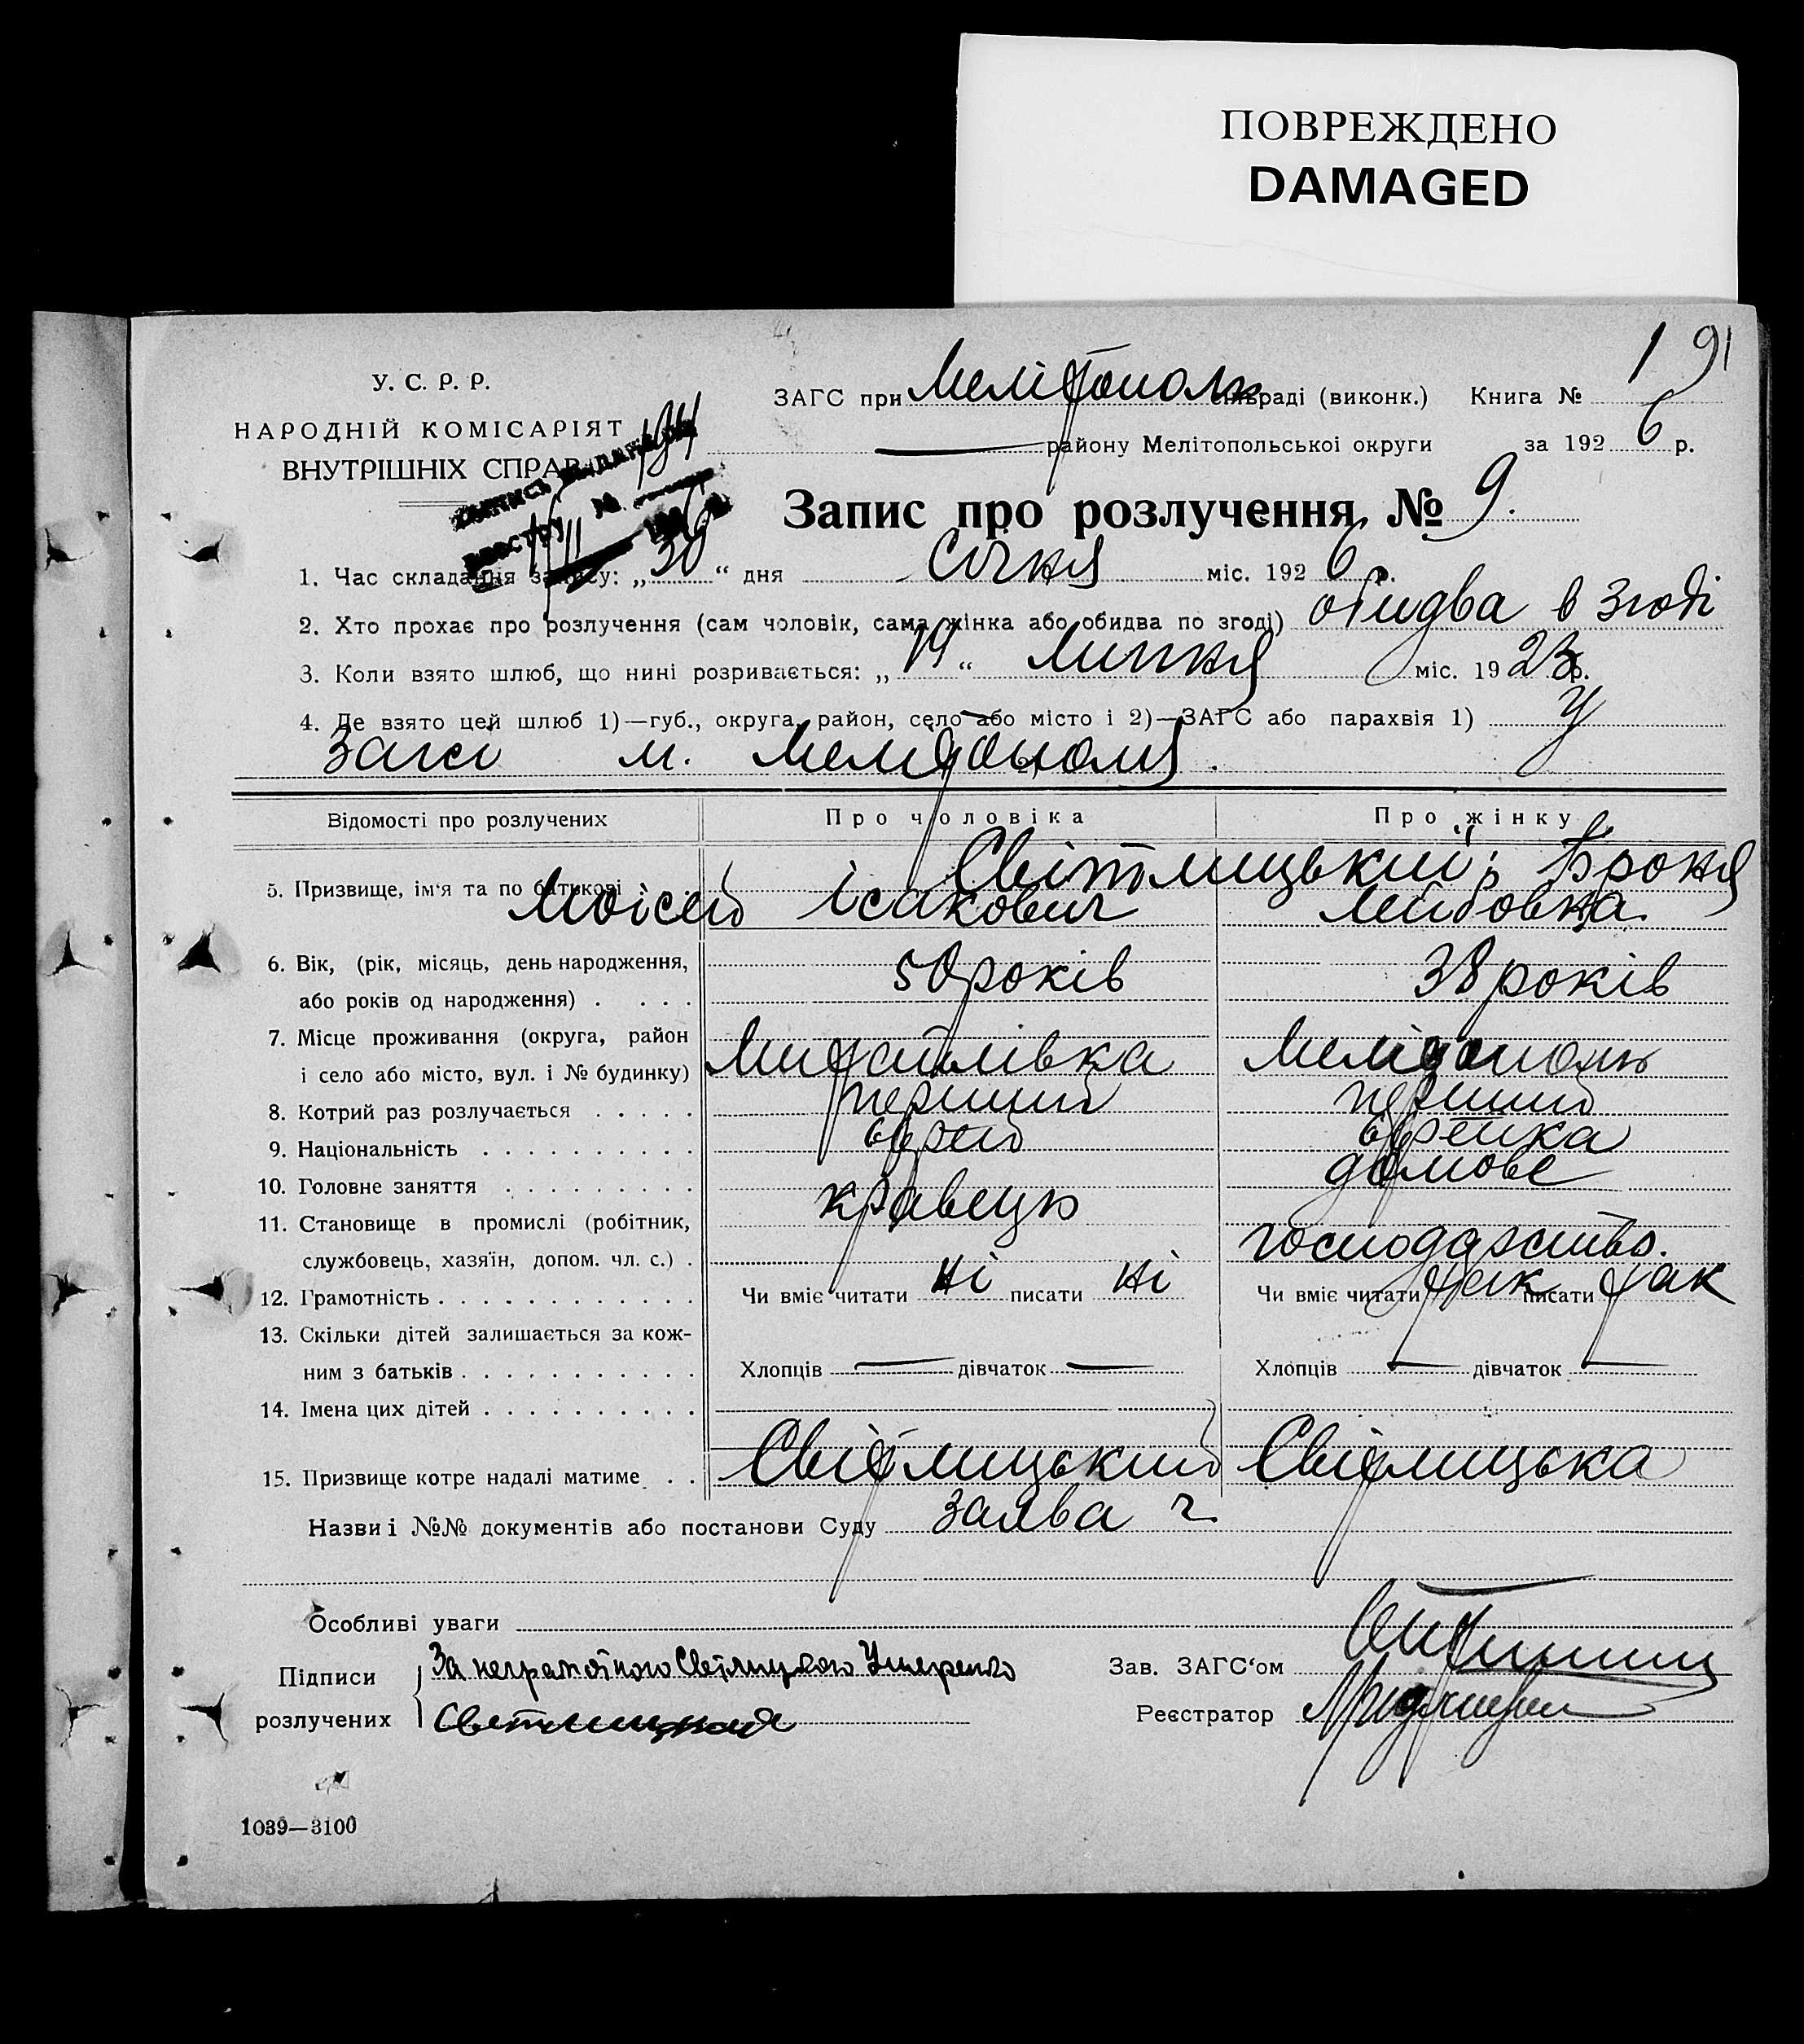 ПОВРЕЖДЕНО
DAMAGED
1 91
У. С. Р. Р.
НАРОДНІЙ КОМІСАРІЯТ
ВНУТРІШНІХ СПРАВ
ЗАГС при Мелітополь сільраді (виконк.) Книга №
району Мелітопольської округи за 1926 р.
Запис про розлучення № 9.
1. Час складання запису: „30“ дня Січня міс. 1926 р.
2. Хто прохає про розлучення (сам чоловік, сама жінка або обидва по згоді) обидва в згоді
3. Коли взято шлюб, що нині розривається: „14“ Липня міс. 1923 р.
4. Де взято цей шлюб 1)—губ., округа, район, село або місто і 2)—ЗАГС або парахвія 1) У
Загсі м. Мелітополя.
Відомості про розлучених Про чоловіка Про жінку
5. Призвище, ім'я та по батькові Світлицький; Броня
Моісей Ісакович Лейбовна
6. Вік, (рік, місяць, день народження, 50 років 38 років
або років од народження)
7. Місце проживання (округа, район
і село або місто, вул. і № будинку) Михайлівка Мелітополь
8. Котрий раз розлучається перший перший
9. Національність еврей еврейка
10. Головне заняття кравець домове
11. Становище в промислі (робітник,
службовець, хазяїн, допом. чл. с.) господарство.
12. Грамотність Чи вміє читати ні писати ні Чи вміє читати так писати так
13. Скільки дітей залишається за кож-
ним з батьків Хлопців — дівчаток — Хлопців — дівчаток —
14. Імена цих дітей
15. Призвище котре надалі матиме Світлицький Світлицька
Назви і №№ документів або постанови Суду заява
Особливі уваги
Підписи За неграмотного Светлицкого
Зав. ЗАГС'ом
розлучених Светлицкая
Реєстратор
1039—3100